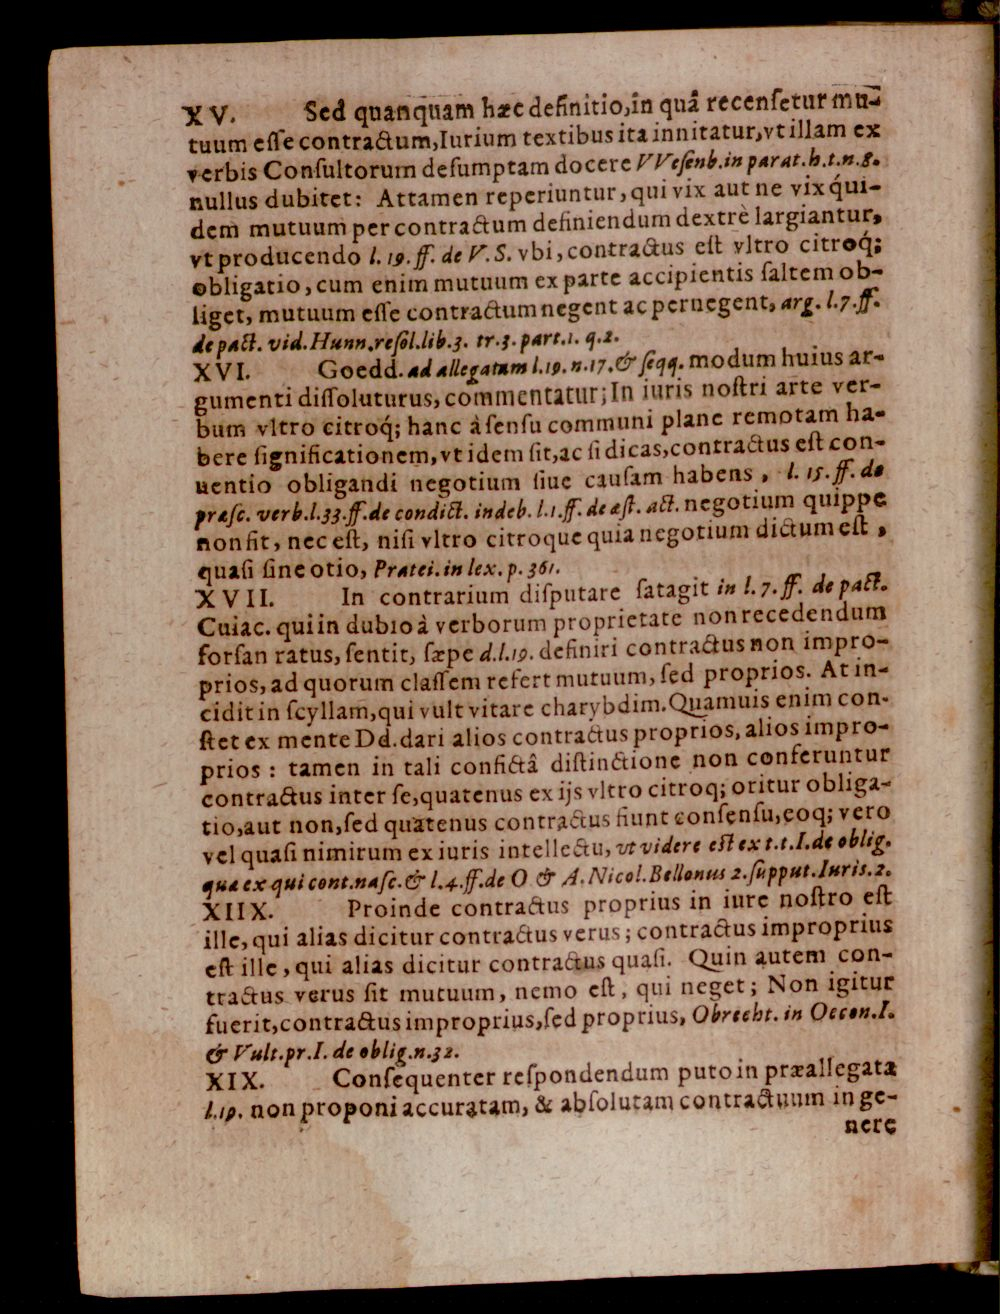 XV. Sed quanquam hæc definitio, in quâ recensetur mu-
tuum esse contractum, Iurium textibus ita innitatur, vt illam ex
verbis Consultorum desumptam docere VVesenb. in parat. h. t. n. 8.
nullus dubitet: Attamen reperiuntur, qui vix aut ne vix q́ui-
dem mutuum per contractum definiendum dextrè largiantur,
vt producendo l. 19. ff. de V. S. vbi, contractus est vltro citroq́;
obligatio, cum enim mutuum ex parte accipientis saltem ob-
liget, mutuum esse contractum negent ac pernegent, arg. l. 7. ff.
de pact. vid. Hunn. resol. lib. 3. tr. 3. part. 1. q. 2.
XVI. Goedd. ad allegatam l. 19. n. 17. & seqq. modum huius ar-
gumenti dissoluturus, commentatur; In iuris nostri arte ver-
bum vltro citroq́; hanc à sensu communi plane remotam ha-
bere significationem, vt idem sit, ac si dicas, contractus est con-
uentio obligandi negotium siue causam habens, l. 15. ff. de
præsc. verb. l. 33. ff. de condict. indeb. l. 1. ff. de æst. act. negotium quippe
non fit, nec est, nisi vltro citroque quia negotium dictum est,
quasi sine otio, Pratei. in lex. p. 361.
XVII. In contrarium disputare satagit in l. 7. ff. de pact.
Cuiac. qui in dubio à verborum proprietate non recedendum
forsan ratus, sentit, sæpe d. l. 19. definiri contractus non impro-
prios, ad quorum classem refert mutuum, sed proprios. At in-
cidit in scyllam, qui vult vitare charybdim. Quamuis enim con-
stet ex mente Dd. dari alios contractus proprios, alios impro-
prios: tamen in tali confictâ distinctione non conferuntur
contractus inter se, quatenus ex ijs vltro citroq; oritur obliga-
tio, aut non, sed quatenus contractus fiunt consensu, eoq; vero
vel quasi nimirum ex iuris intellectu, vt videre est ex t. t. I. de oblig.
quæ ex qui cont. nasc. & l. 4. ff. de O & A. Nicol. Bellonus 2. supput. Iuris. 2.
XIIX. Proinde contractus proprius in iure nostro est
ille, qui alias dicitur contractus verus; contractus improprius
est ille, qui alias dicitur contractus quasi. Quin autem con-
tractus verus sit mutuum, nemo est, qui neget; Non igitur
fuerit, contractus improprius, sed proprius, Obrecht. in Oecon. I.
& Vult. pr. I. de oblig. n. 32.
XIX. Consequenter respondendum puto in præallegata
l. 19. non proponi accuratam, & absolutam contractuum in ge-
nere